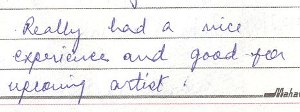 Really had a nice
experience and good for
upcoming artist.
Mahav